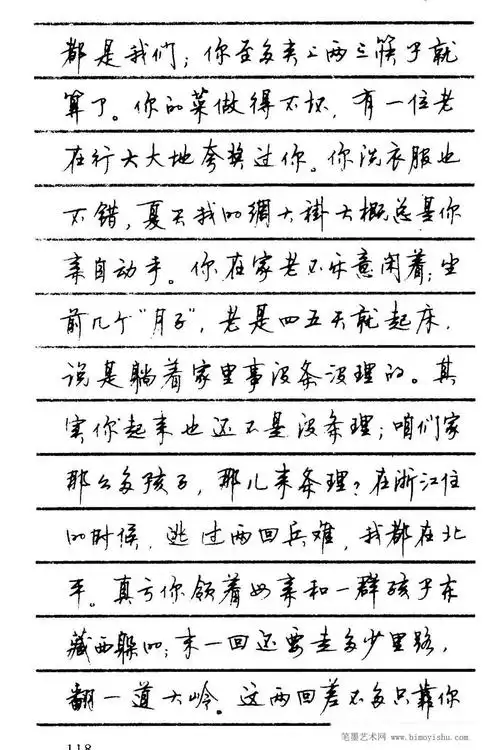 都是我们；你至多夹上两三筷子就
算了。你的菜做得不坏，有一位老
在行大大地夸奖过你。你洗衣服也
不错，夏天我的绸大褂大概总是你
亲自动手。你在家老不乐意闲着；坐
前几个“月子”，老是四五天就起床，
说是躺着家里事没条没理的。其
实你起来也还不是没条理；咱们家
那么多孩子，那儿来条理？在浙江住
的时候，逃过两回兵难，我都在北
平。真亏你领着母亲和一群孩子东
藏西躲的；末一回还要走多少里路，
翻一道大岭。这两回差不多只靠你
118
笔墨艺术网 www.bimoyishu.com